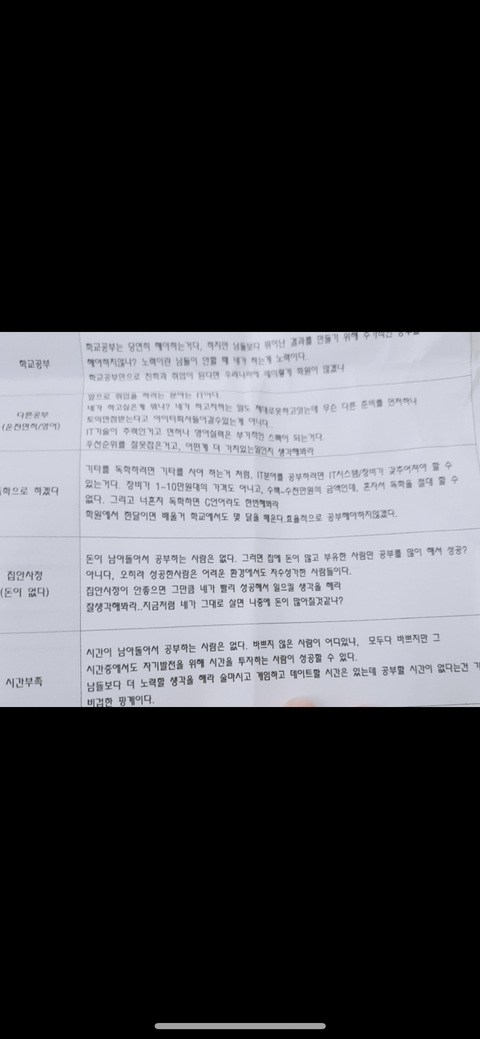 학교공부
학교공부는 당연히 해야하는거다, 하지만 남들보다 뛰어난 결과를 만들기 위해
해야하지않나? 노력이란 남들이 안할 때 네가 하는게 노력이다.
학교공부만으로 진학과 취업이 된다면 우리나라에 왜이렇게 학원이 많겠나
다른공부
(운전면허/영어)
앞으로 취업을 하려는 분야는 IT이다.
네가 하고싶은게 뭐냐? 네가 하고자하는 일도 제대로못하고잇는데 무슨 다른 준비를 먼저하나
토익만점받는다고 아이티회사들어갈수있는게 아니다..
IT기술이 주력인거고 면허나 영어실력은 부가적인 스페이 되는거다.
우선순위를 잘못잡은거고, 어떤게 더 가치있는일인지 생각해봐라
독학으로 하겠다
기타를 독학하려면 기타를 사야 하는거 처럼, IT분야를 공부하려면 IT시스템/장비가 갖추어져야 할 수
있는거다. 장비가 1-10만원대의 가격도 아니고, 수백~수천만원의 금액인데, 혼자서 독학을 절대 할 수
없다. 그리고 너혼자 독학하면 C언어라도 한번해봐라
학원에서 한달이면 배울거 학교에서도 몇 달을 배운다.효율적으로 공부해야하지않겠다.
집안사정
(돈이 없다)
돈이 남아돌아서 공부하는 사람은 없다. 그러면 집에 돈이 많고 부유한 사람만 공부를 많이 해서 성공?
아니다, 오히려 성공한사람은 어려운 환경에서도 자수성가한 사람들이다.
집안사정이 안좋으면 그만큼 네가 빨리 성공해서 일으킬 생각을 해라
잘생각해봐라..지금처럼 네가 그대로 살면 나중에 돈이 많아질것같나?
시간부족
시간이 남아돌아서 공부하는 사람은 없다. 바쁘지 않은 사람이 어디있나, 모두다 바쁘지만 그
시간중에서도 자기발전을 위해 시간을 투자하는 사람이 성공할 수 있다.
남들보다 더 노력할 생각을 해라 술마시고 게임하고 데이트할 시간은 있는데 공부할 시간이 없다는건
비겁한 핑계이다.